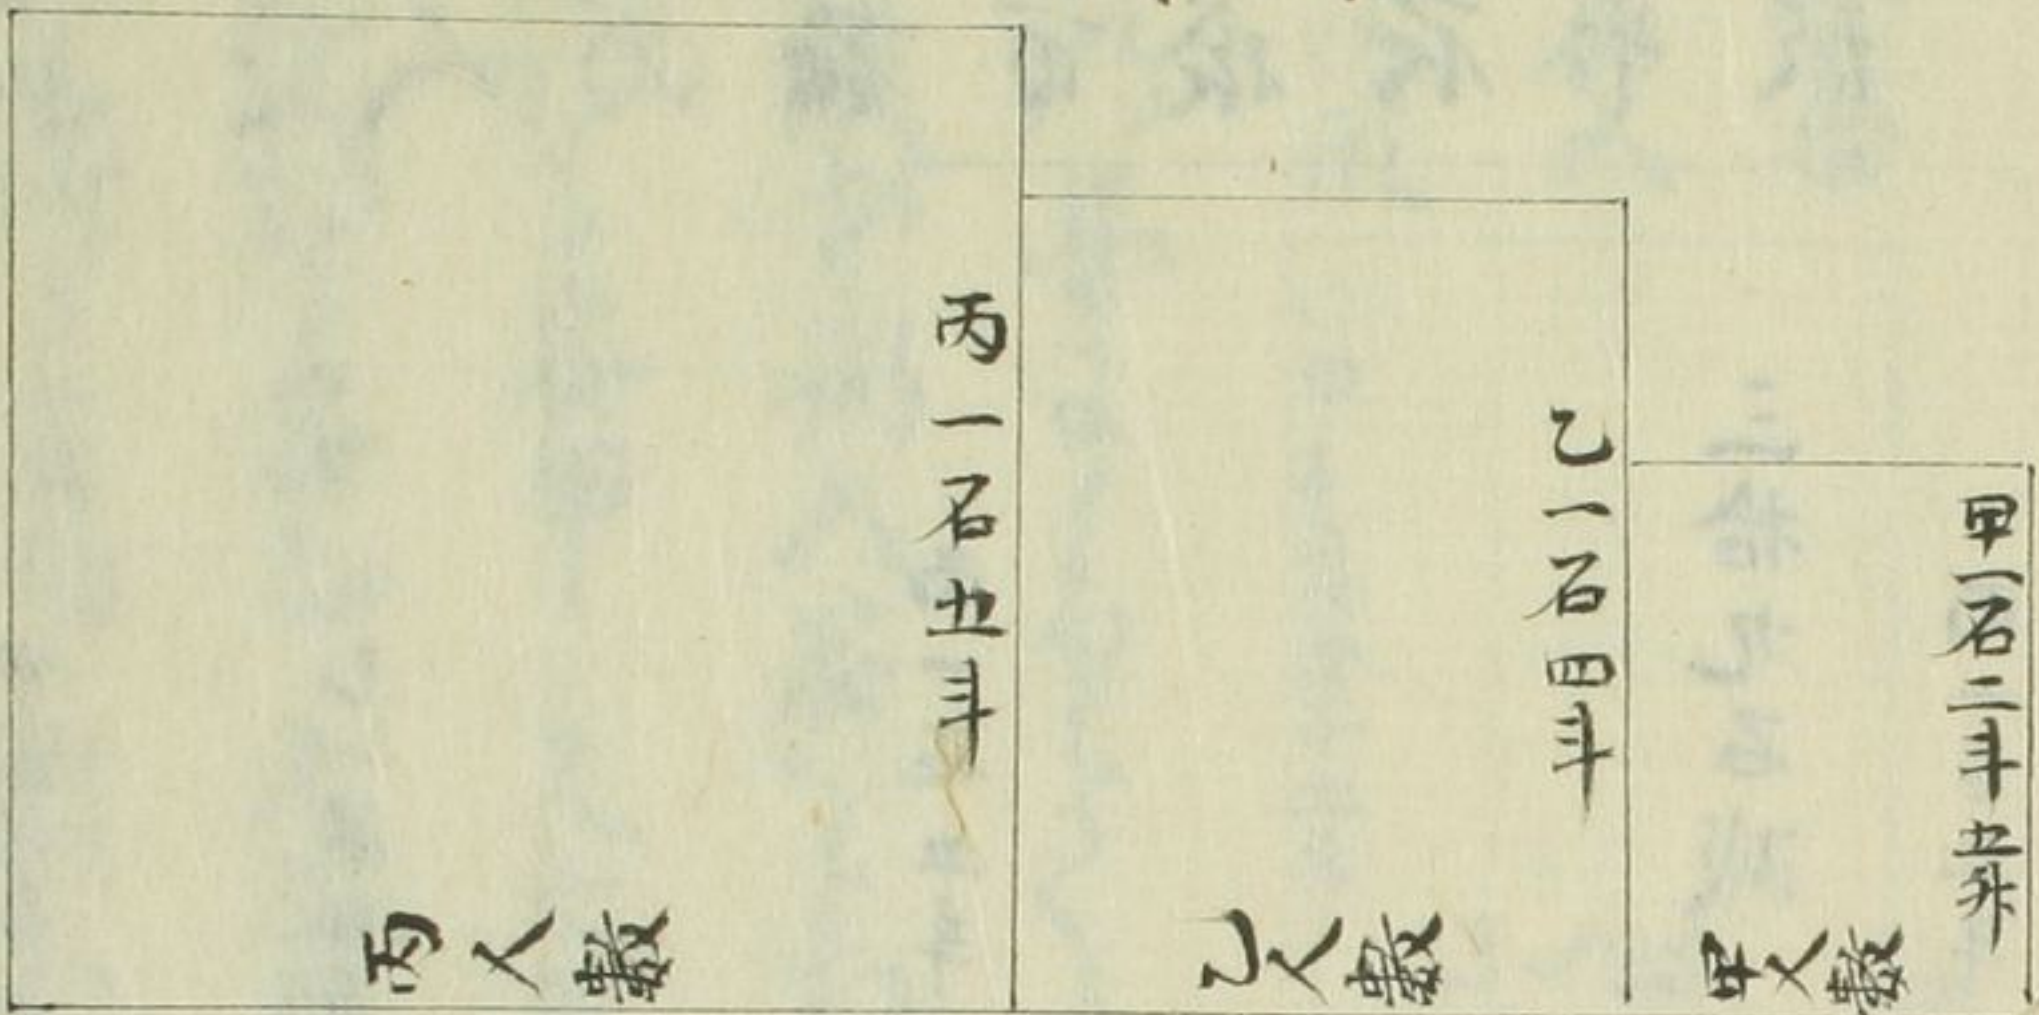 甲一石二斗五升
甲人數
乙一石四斗
乙人數
丙一石五斗
丙人數